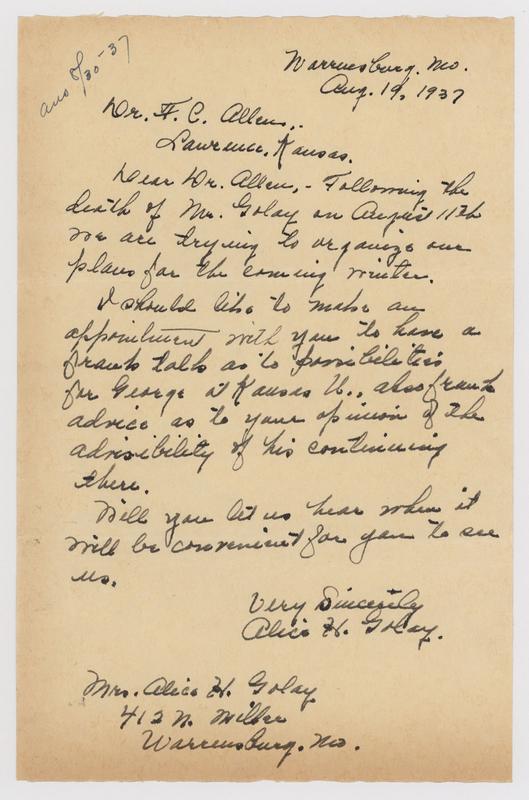 ans 8/30-37
Warrensburg. Mo.
Aug. 19, 1937
Dr. F. C. Allen,.
Lawrence, Kansas.
Dear Dr. Allen,- Following the
death of Mr. Golay on August 11th
we are trying to organize our
plans for the coming winter.
I should like to make an
appointment with you to have a
frank talk as to possibilities
for George at Kansas U., also frank
advice as to your opinion of the
advisibility of his continuing
there.
Will you let us hear when it
will be convenient for you to see
us.
Very Sincerely
Alice H. Golay.
Mrs. Alice H. Golay
412 N. Miller
Warrensburg, Mo.